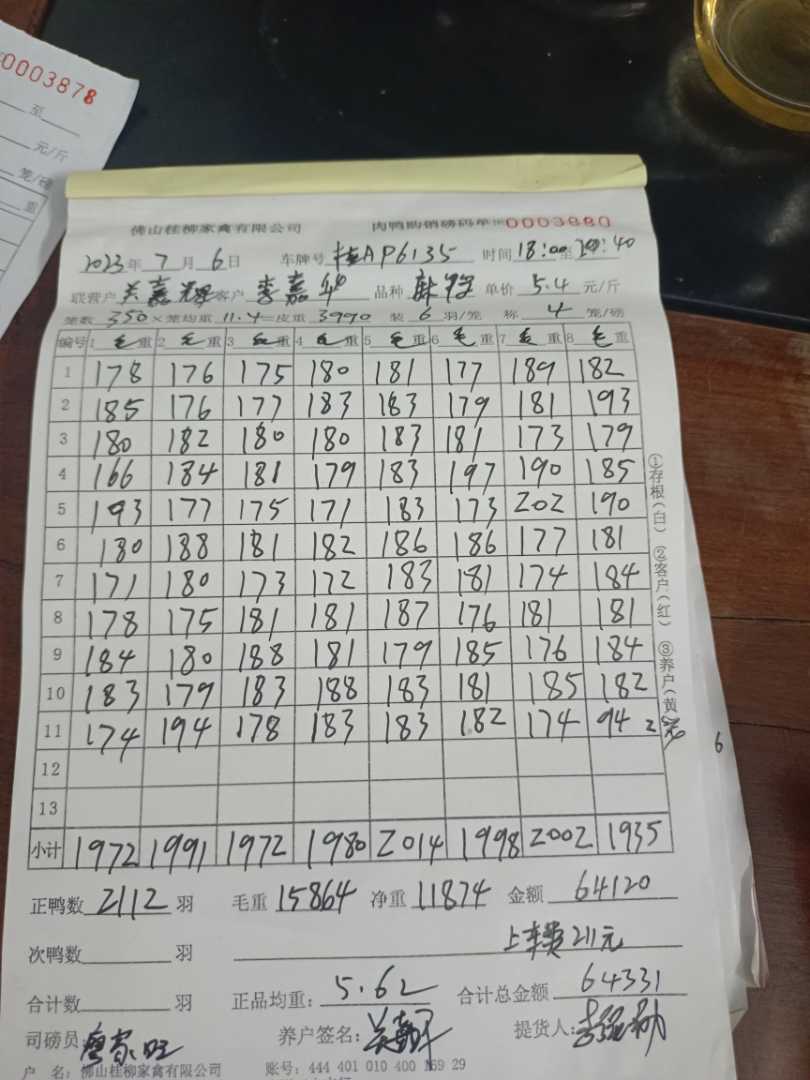 0003878
至
元/斤
笼/磅
重
佛山桂柳家禽有限公司 肉鸭购销磅码单 0003880
2023年7月6日 车牌号 桂AP6135 时间 18:00至20:40
联营户 关嘉辉 客户 李嘉华 品种 麻鸭 单价 5.4 元/斤
笼数 350×笼均重 11.4=皮重 3990 装 6 羽/笼 称 4 笼/磅
编号 1 毛重 2 毛重 3 毛重 4 毛重 5 毛重 6 毛重 7 毛重 8 毛重
1 178 176 175 180 181 177 189 182
2 185 176 177 183 183 179 181 193
3 180 182 180 180 183 181 173 179
4 166 184 181 179 183 197 190 185
5 193 177 175 171 183 173 202 190
6 180 188 181 182 186 186 177 181
7 171 180 173 172 183 181 174 184
8 178 175 181 181 187 176 181 181
9 184 180 188 181 179 185 176 184
10 183 179 183 188 183 181 185 182
11 174 194 178 183 183 182 174 94 2笼
12
13
小计 1972 1991 1972 1980 2014 1998 2002 1935
①存根(白) ②客户(红) ③养户(黄)
6
正鸭数 2112 羽 毛重 15864 净重 11874 金额 64120
次鸭数 羽 上车费211元
合计数 羽 正品均重: 5.62 合计总金额 64331
司磅员: 廖家旺 养户签名: 提货人:
户 名: 佛山桂柳家禽有限公司 账号: 444 401 010 400 169 29